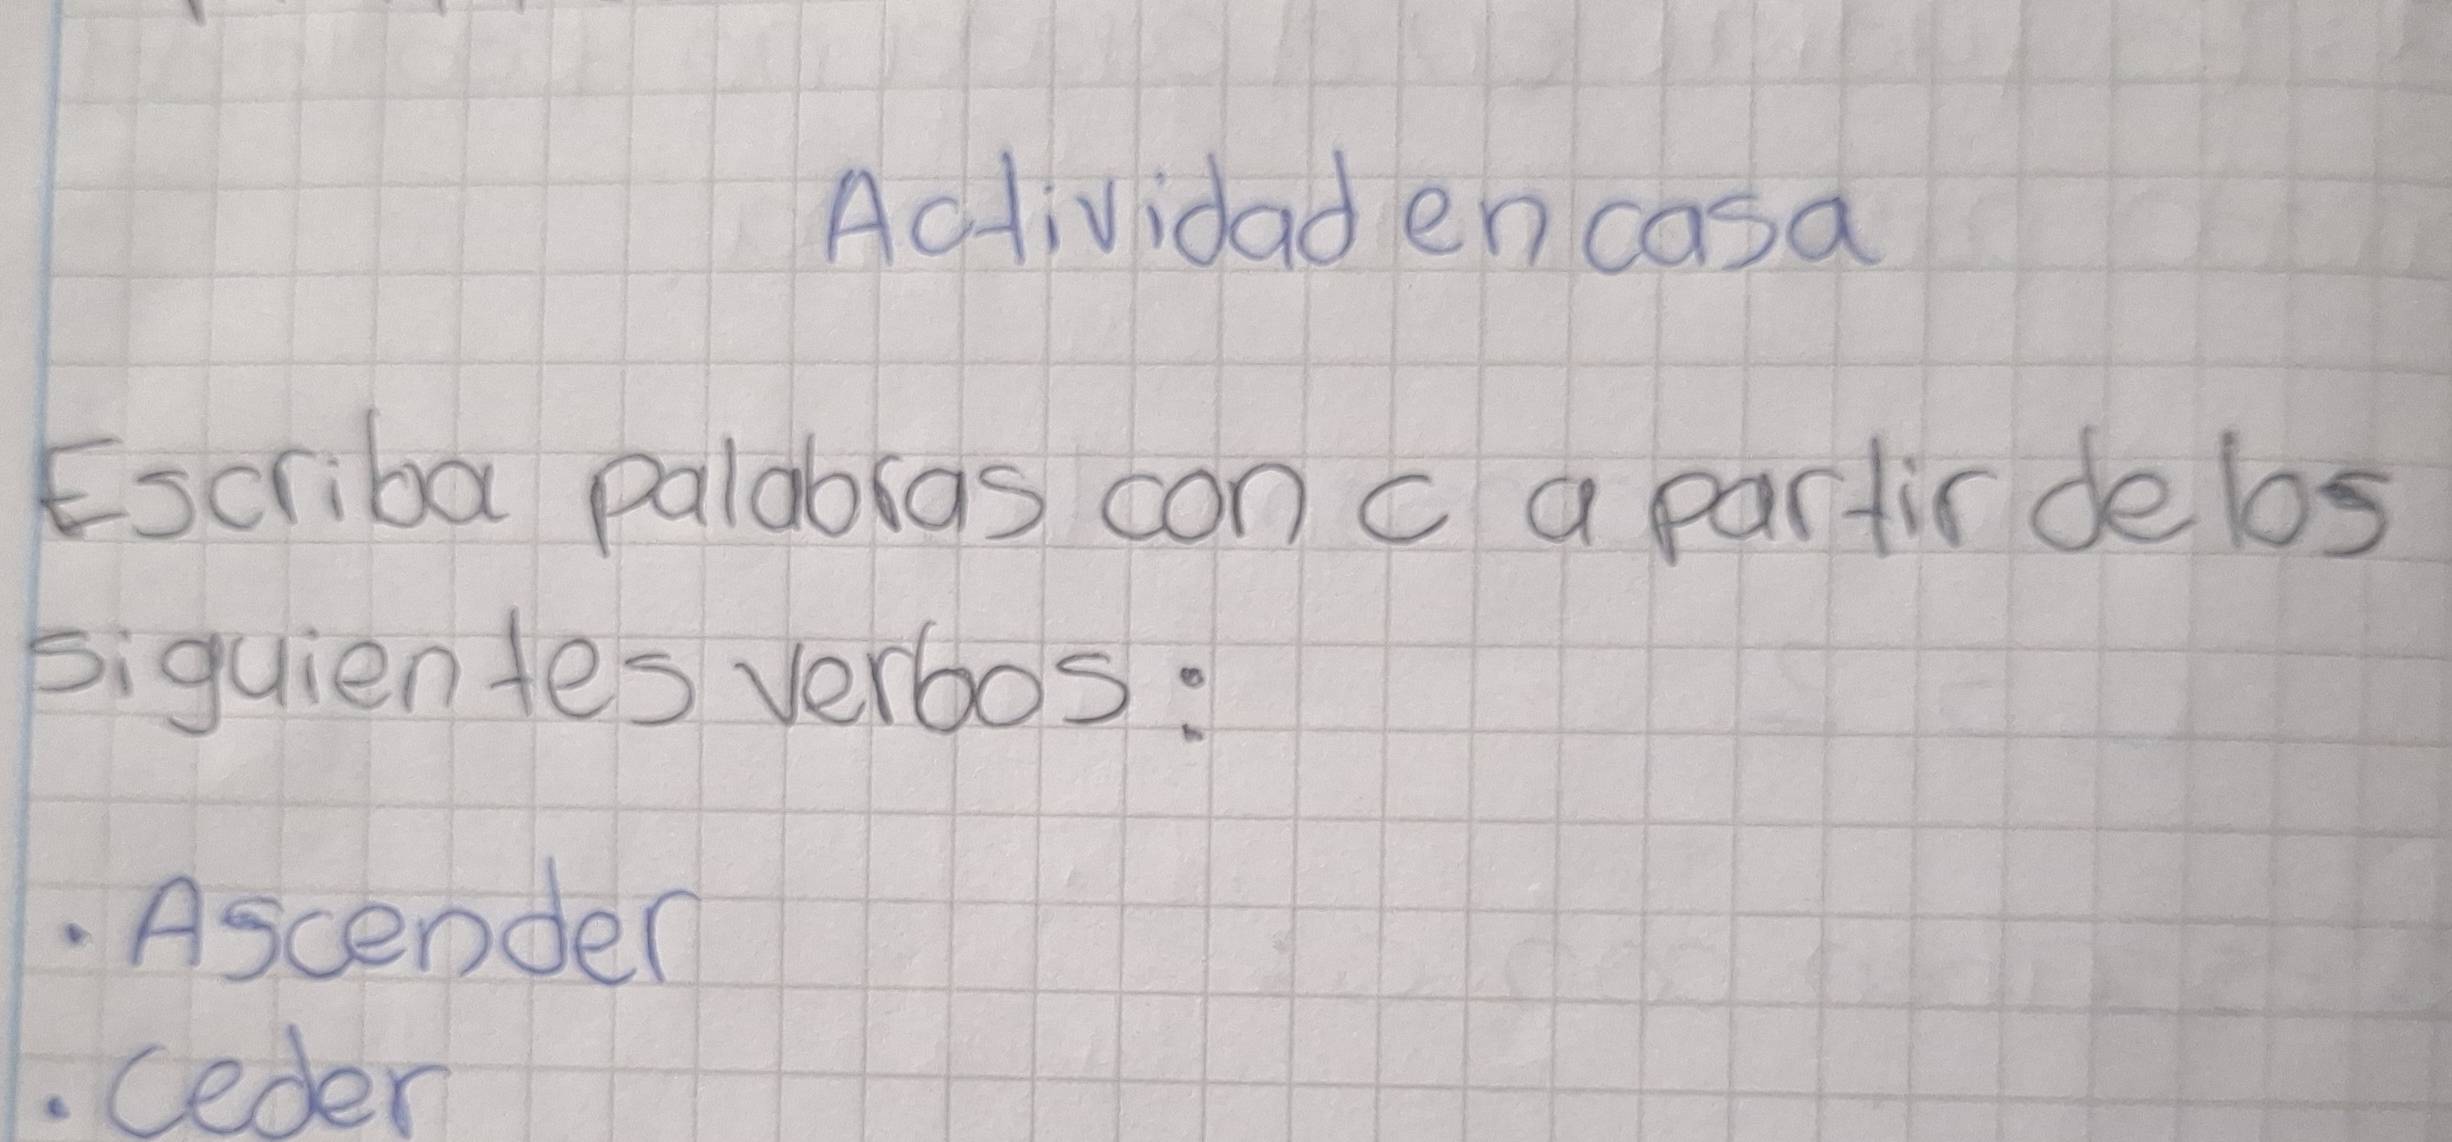 Actividad en casa
Escriba palabras con c a partir de los
siguientes verbos:
· Ascender
· Ceder